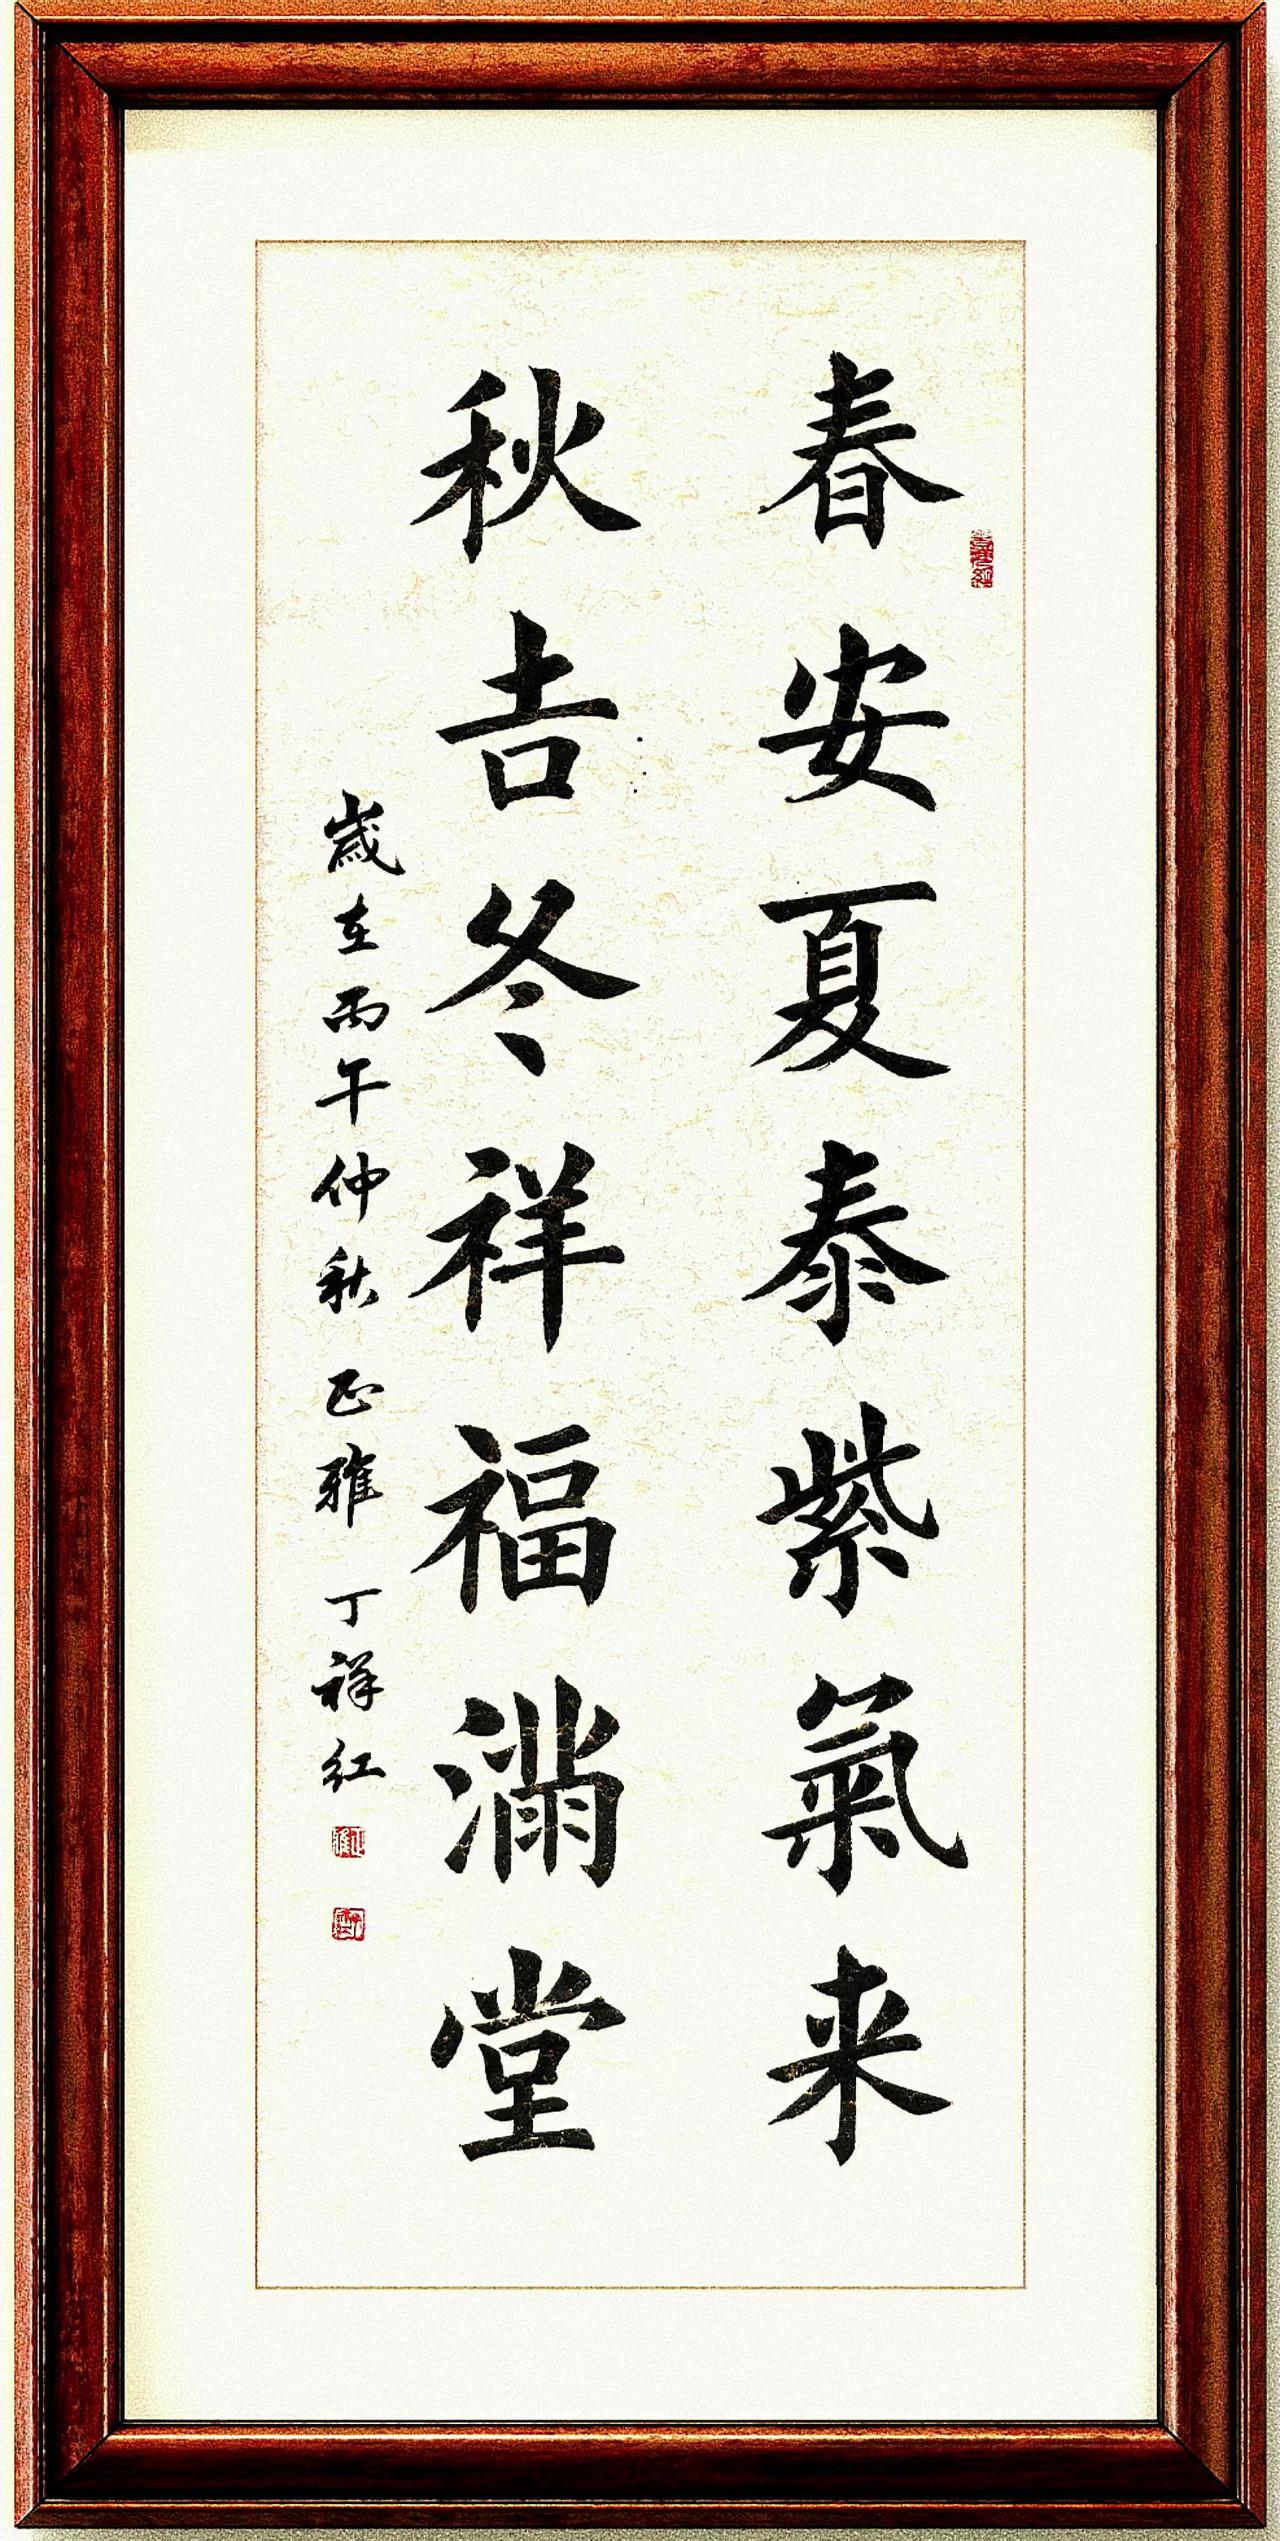 春安夏泰紫氣来
秋吉冬祥福满堂
歲在丙午仲秋正雅丁祥红